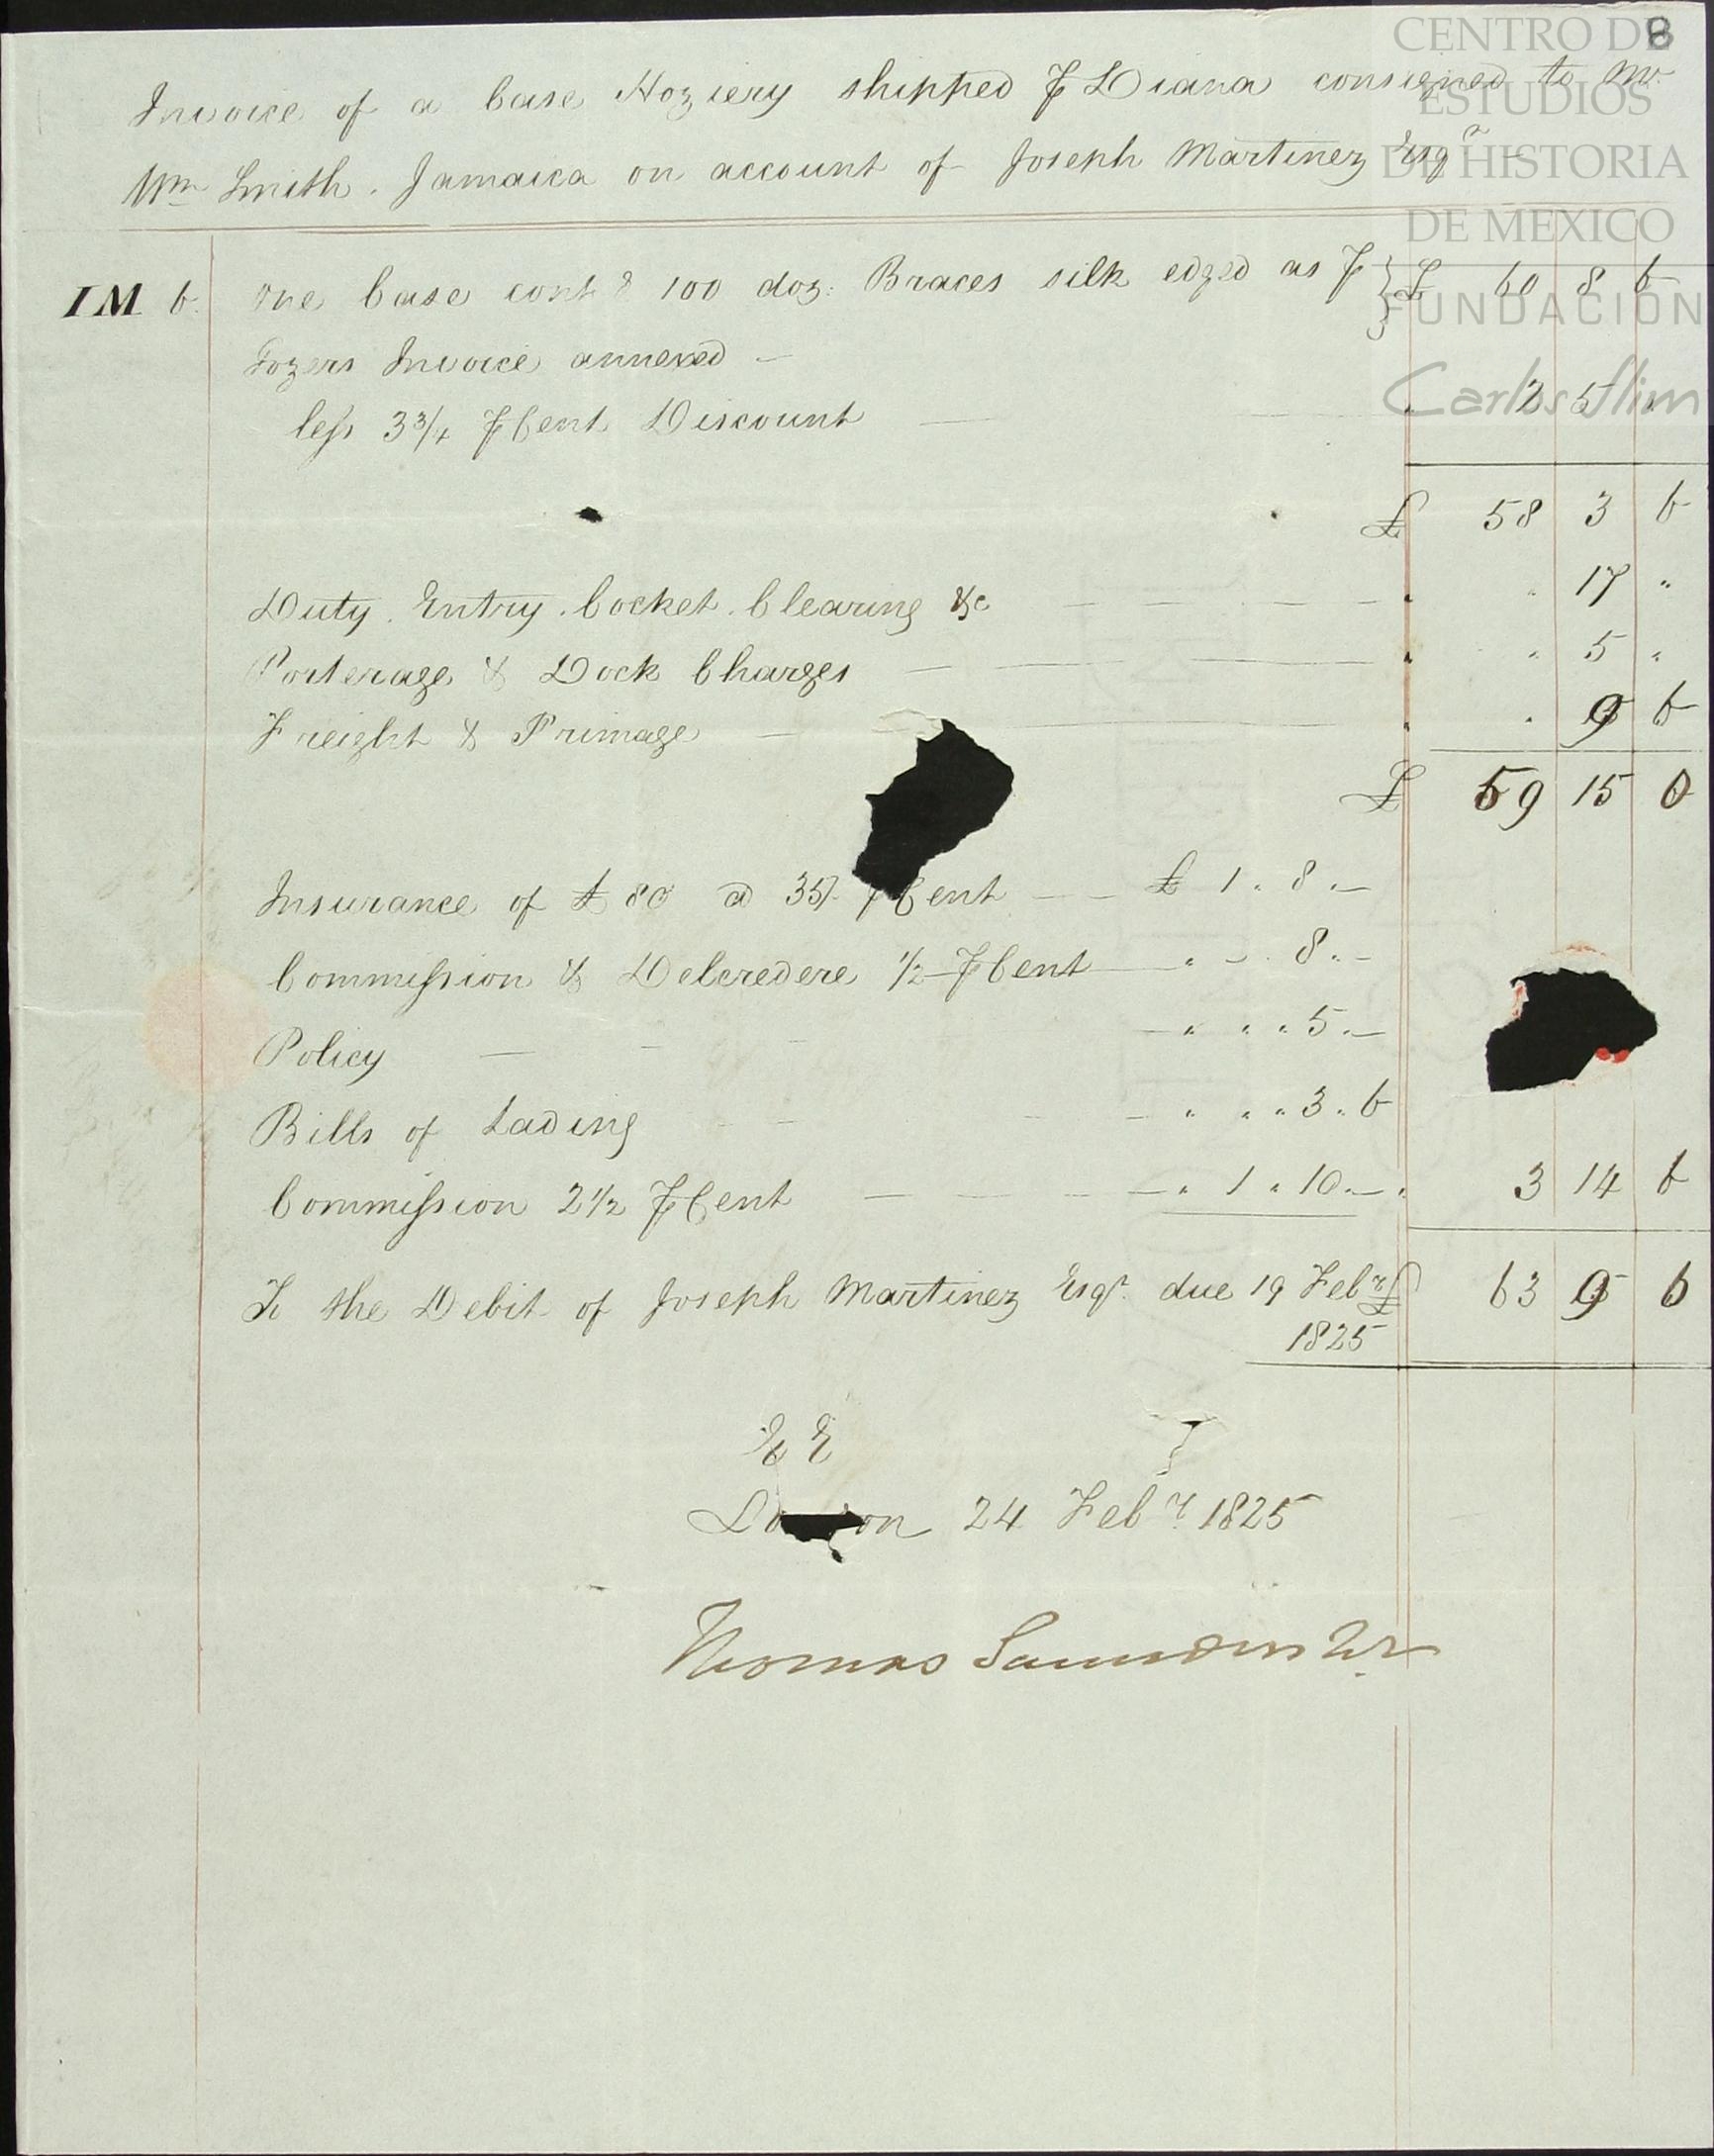 8
Invoice of a Case Hoziery shipped ⅌ Diana consigned to Mr.
Wm Smith. Jamaica on account of Joseph Martinez Esqr
IM 6. One Case contg 100 doz: Braces silk edged as ⅌ } £ 60 8 6
Tozers Invoice annexed —
less 3¾ ⅌ Cent Discount — " 2 5 "
£ 58 3 6
Duty. Entry. Cocket. Clearing &c — " " 17 "
Porterage & Dock Charges — " " 5 "
Freight & Primage — " " 9 6
£ 59 15 0
Insurance of £80 @ 35/- ⅌ Cent — £ 1 " 8 " —
Commission & Delcredere ½ ⅌ Cent — " - " 8 " —
Policy — " " " 5 " —
Bills of Lading — " " " 3 " 6
Commission 2½ ⅌ Cent — " 1 " 10 " — " 3 14 6
To the Debit of Joseph Martinez Esqr. due 19 Febr £ 63 9 6
1825
E E
Lo on 24 Febr 1825
Thomas
CENTRO DE
ESTUDIOS
DE HISTORIA
DE MEXICO
FUNDACIÓN
Carlos Slim